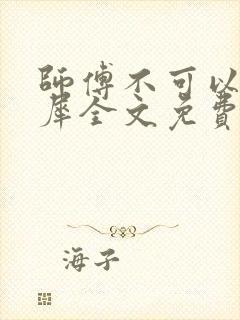 師傅不可以
犀全文免費
海子